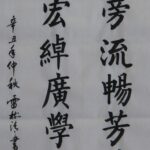 旁流暢芳
宏綽廣學
辛丑年仲秋雷林清書